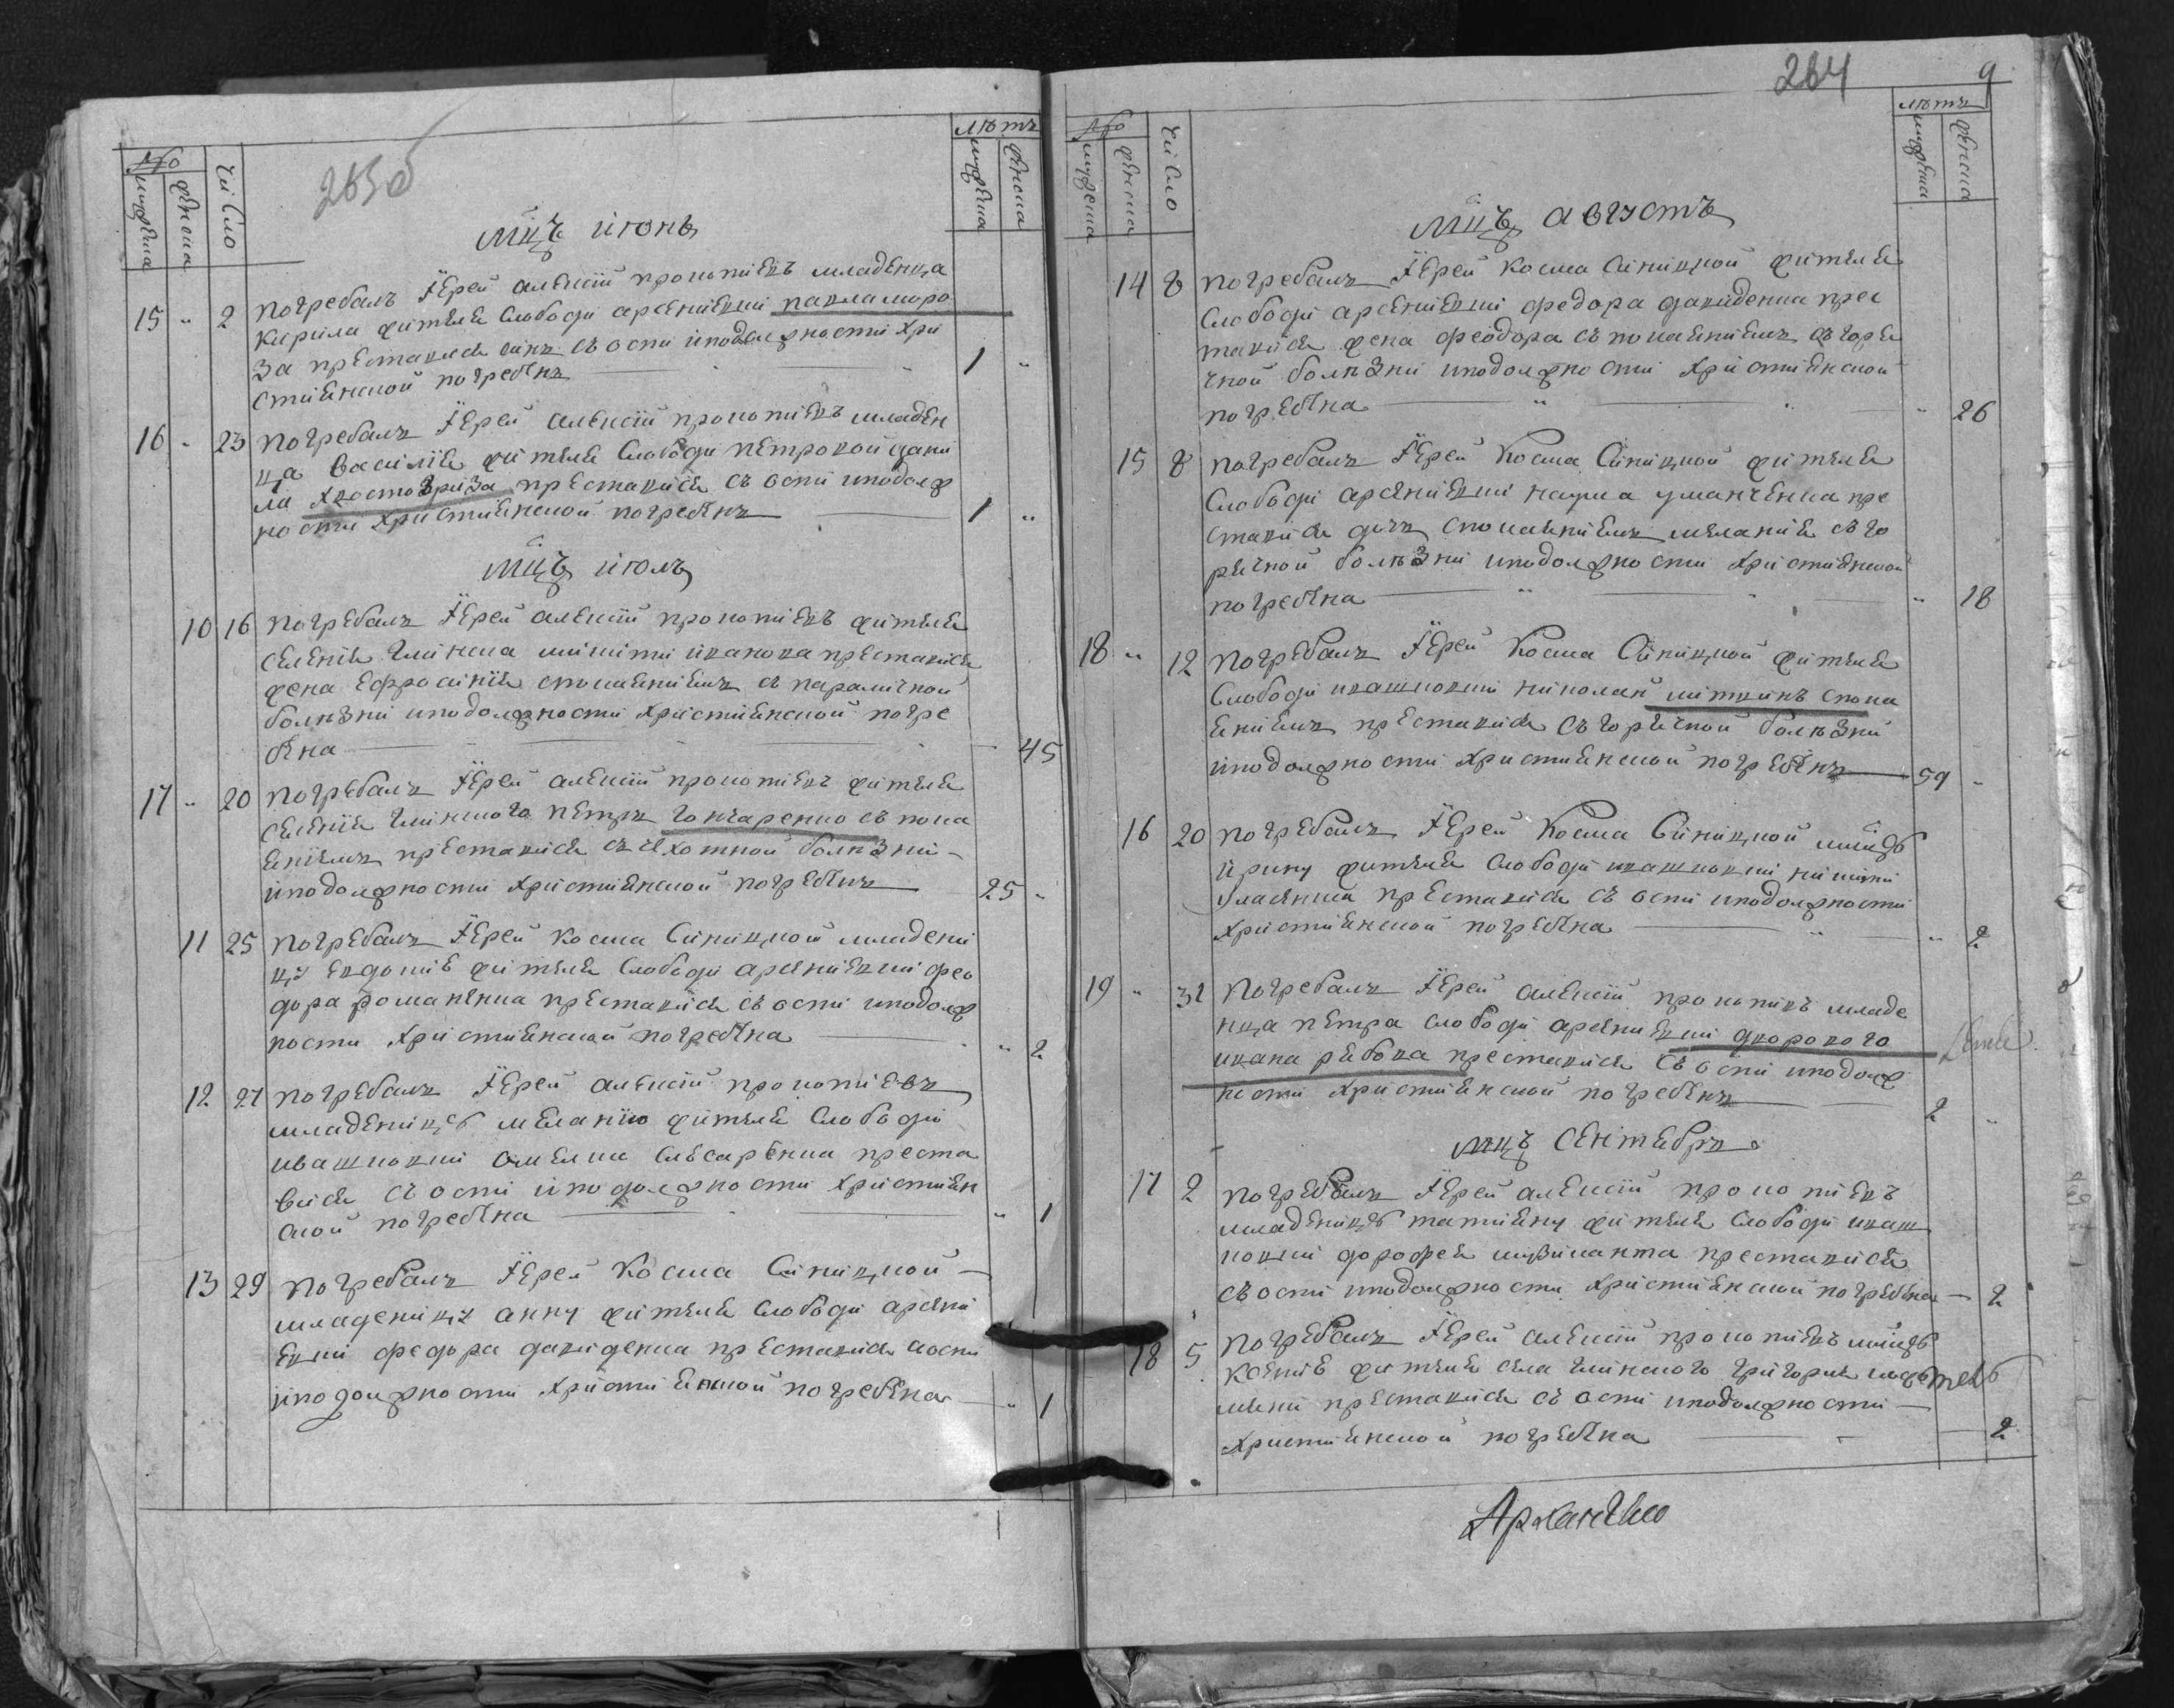 263б
№
мужеска
женска
число
лѣтъ
мужеска
женска
Мцъ июнь
15 " 2 погребалъ Іерей алексій прокопиевъ младенца
кирила жителя слободи арсениевки павла моро
за преставися синъ съ оспи иподолжности хри
стиянской погребенъ 1 "
16 " 23 погребалъ Іерей алексій прокопиевъ младен
ца василія жителя слободи петровой дани
ла хвостовриза преставися съ оспи иподолж
ности християнской погребенъ 1 "
Мцъ июль
10 16 погребалъ Іерей алексій прокопиевъ жителя
селения глинска микити иванова преставися
жена ефросиния споканиемъ съ параличной
болѣзни иподолжности християнской погре
бена 45
17 " 20 погребалъ Іерей алексій прокопиевъ жителя
селения глинского петръ гончаренко съ пока
яниемъ преставися съ чхотной болѣзни
иподолжности християнской погребенъ 25 "
11 25 погребалъ Іерей косма Синицкой младени
цу евдокию жителя слободи арсениевки фео
дора романенка преставися съ оспи иподолж
ности християнской погребена " 2
12 27 погребалъ Іерей алексій прокопиевъ
младеницу меланию жителя слободи
ивашковки омелка слесаренка преста
вися съ оспи иподолжности християн
ской погребена " 1
13 29 погребалъ Іерей Косма Синицкой
младеницу анну жителя слободи арсени
евки федора давиденка преставися соспи
иподолжности християнской погребена " 1
264
9
№
мужеска
женска
число
лѣтъ
мужеска
женска
Мцъ августъ
14 8 погребалъ Іерей косма Синицкой жителя
слободи арсениевки федора давиденка прес
тавися жена феодора съ покаяниемъ съ горя
чной болѣзни иподолжности християнской
погребена " 26
15 8 погребалъ Іерей Косма Синицкой жителя
слободи арсениевки наума уманченка пре
ставися дочь споканиемъ мелания съ го
рячной болѣзни иподолжности християнской
погребена " 18
18 " 12 погребалъ Іерей Косма Синицкой жителя
слободи ивашковки николай миткинъ спока
яниемъ преставися съ горячной болѣзни
иподолжности християнской погребенъ 59 "
16 20 погребалъ Іерей Косма Синицкой
ирину жителя слободи ивашковки никити
власенка преставися съ оспи иподолжности
християнской погребена " 2
19 " 31 погребалъ Іерей алексій прокопиевъ младе
нца петра слободи арсениевки дворового
ивана рябова преставися съ оспи иподолж
ности християнской погребенъ 2 "
мцъ сентябръ
17 2 погребалъ Іерей алексій прокопиевъ
младеницу татияну жителя слободи иваш
ковки дорофея музиканта преставися
съ оспи иподолжности християнской погребена 2
18 5 погребалъ Іерей алексій прокопиевъ
ксению жителя села глинского григория
преставися съ оспи иподолжности
християнской погребена 2